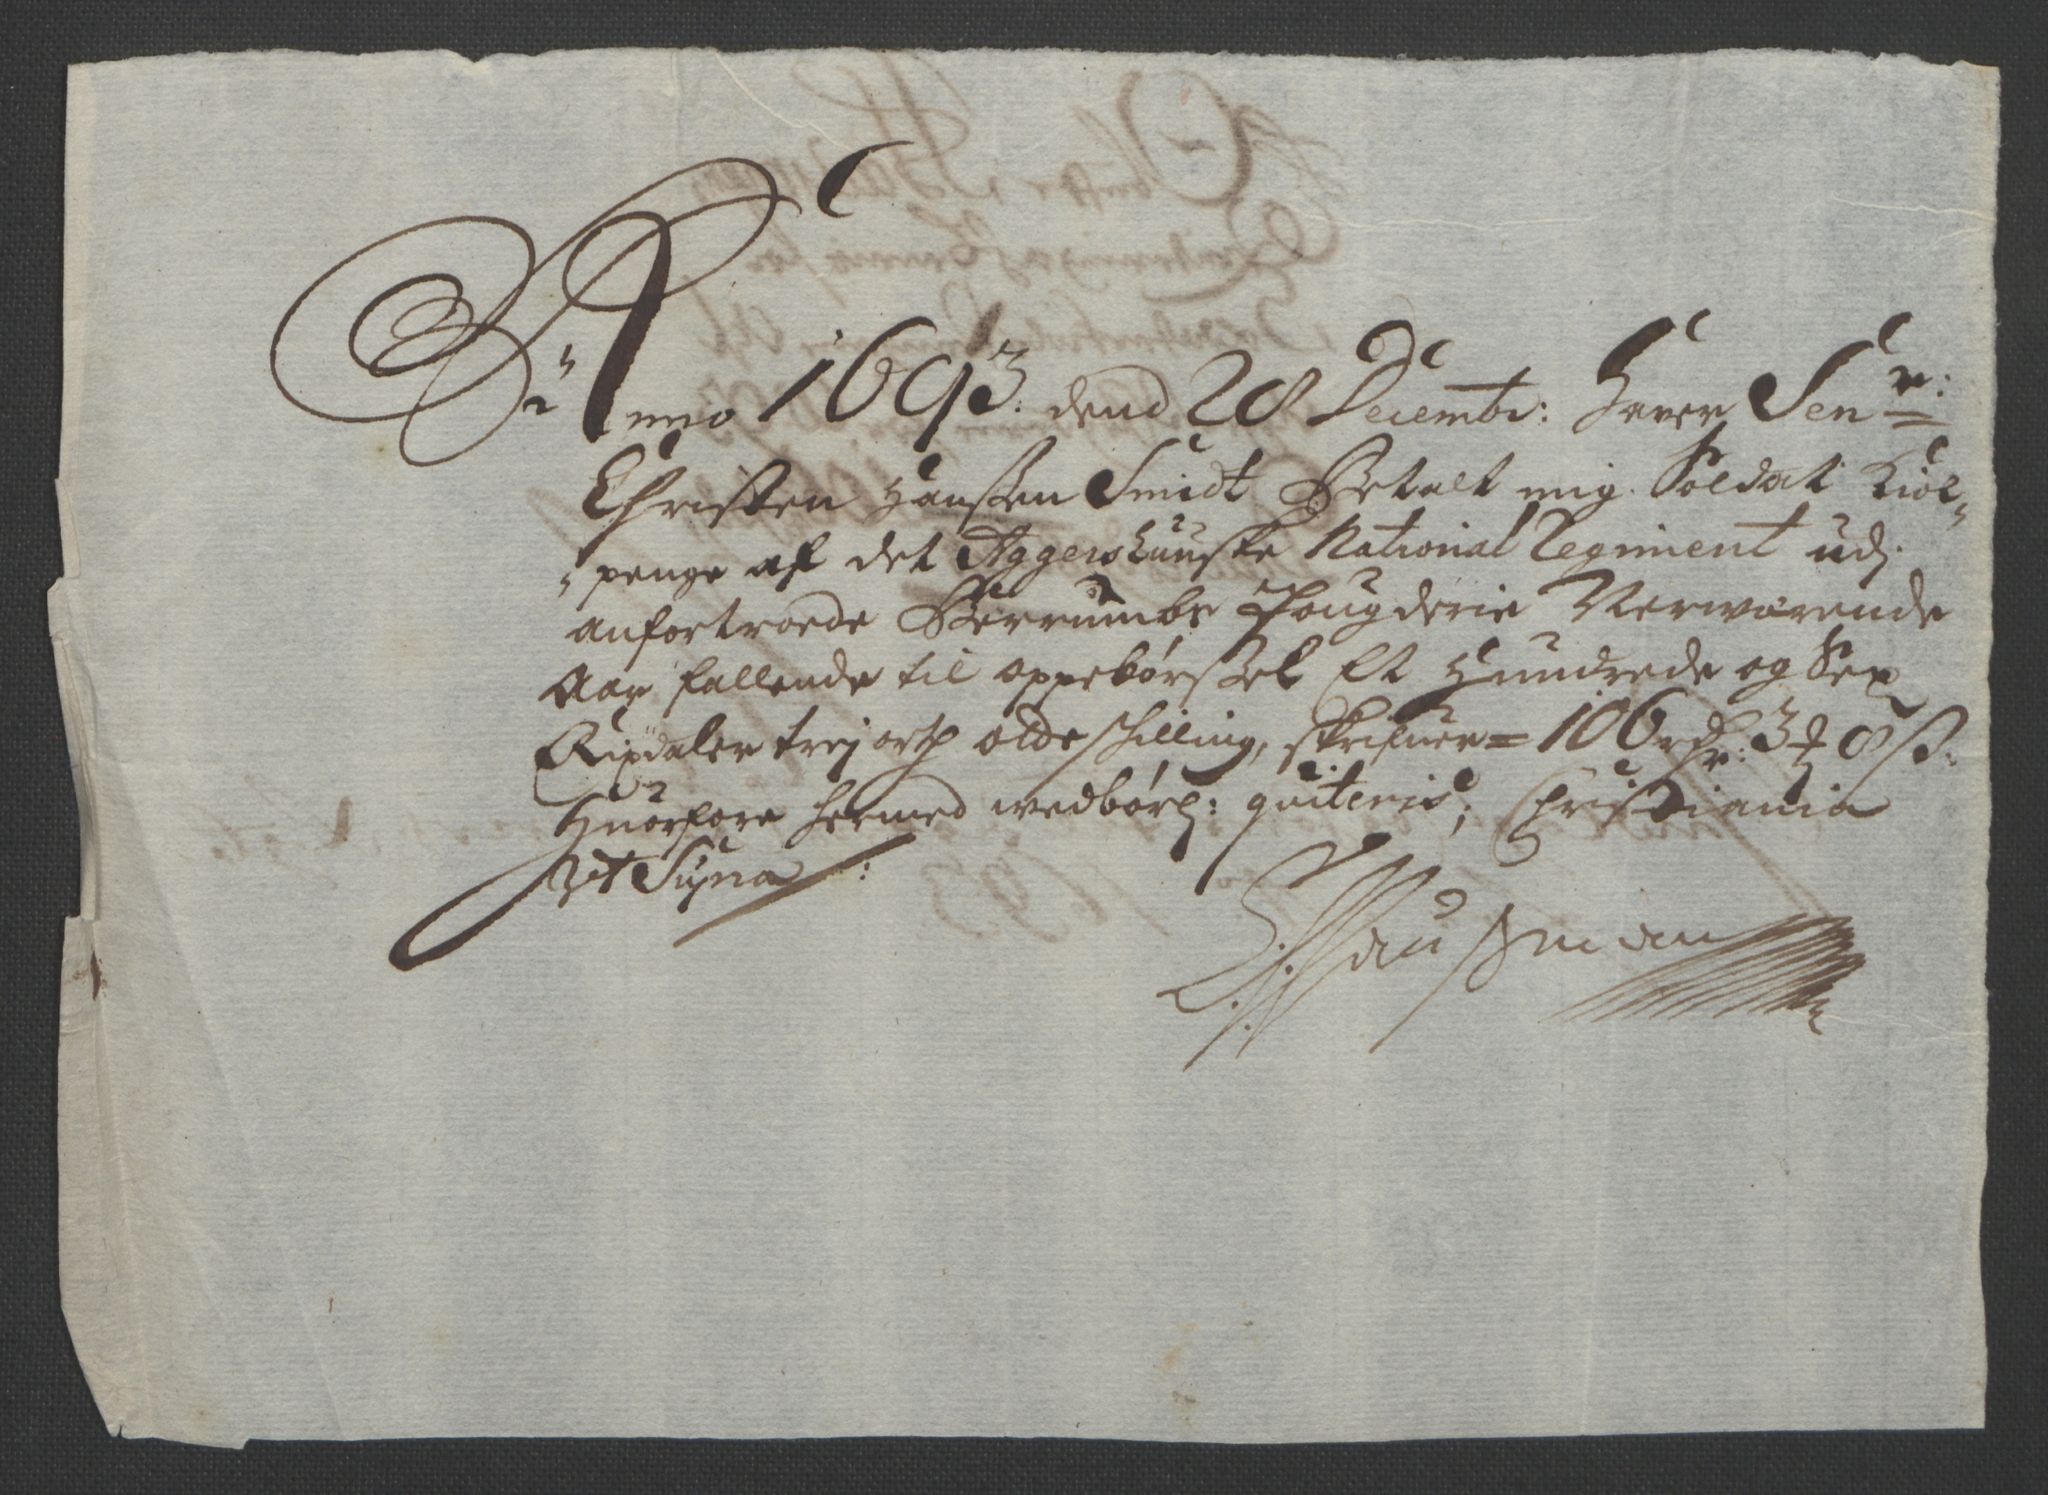 Anno 1693. dend 28 Decembr: Haver Senr:
Christen Hanssen Smidt Betalt mig Soldat Kiol-
penge af det Aggershuuske National Regiment udj
anfortroede Berrumbs Fougderie Nerwærende
Aar fallende til oppebørssel Et Hundrede og Sex
Rixdaler trej orth otde schilling, skrifuer = 106 rdr: 3 ₰ 8 ß:
Huorfore hermed wedbørl: quiteris; Christiania
ut Supra:
Haussman